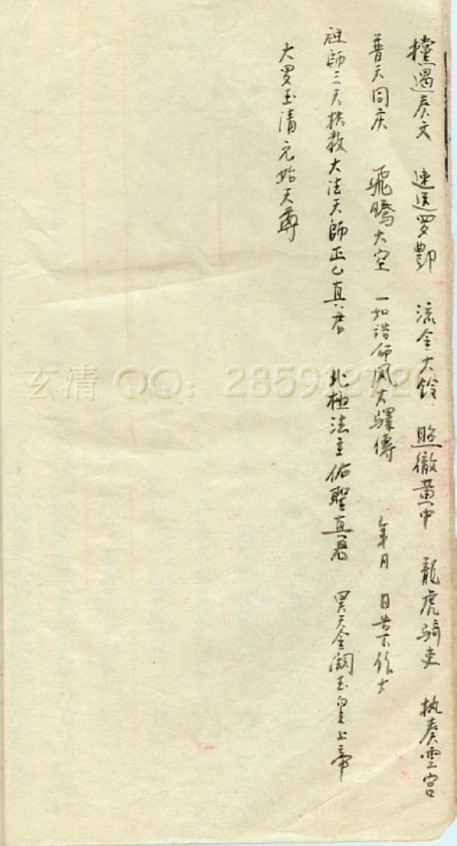 擡遇奏文 速送罗酆 流金大铃 照徹黄中 龍虎骑吏 执奏雲宫
普天同庆 飛騰大空 一如誥命風火驛傳 年月 日具下作士
祖師三天扶教大法天師正乙真君 北極法主佑聖真君 昊天金闕玉皇上帝
大罗玉清元始天尊
玄清 QQ：285912720